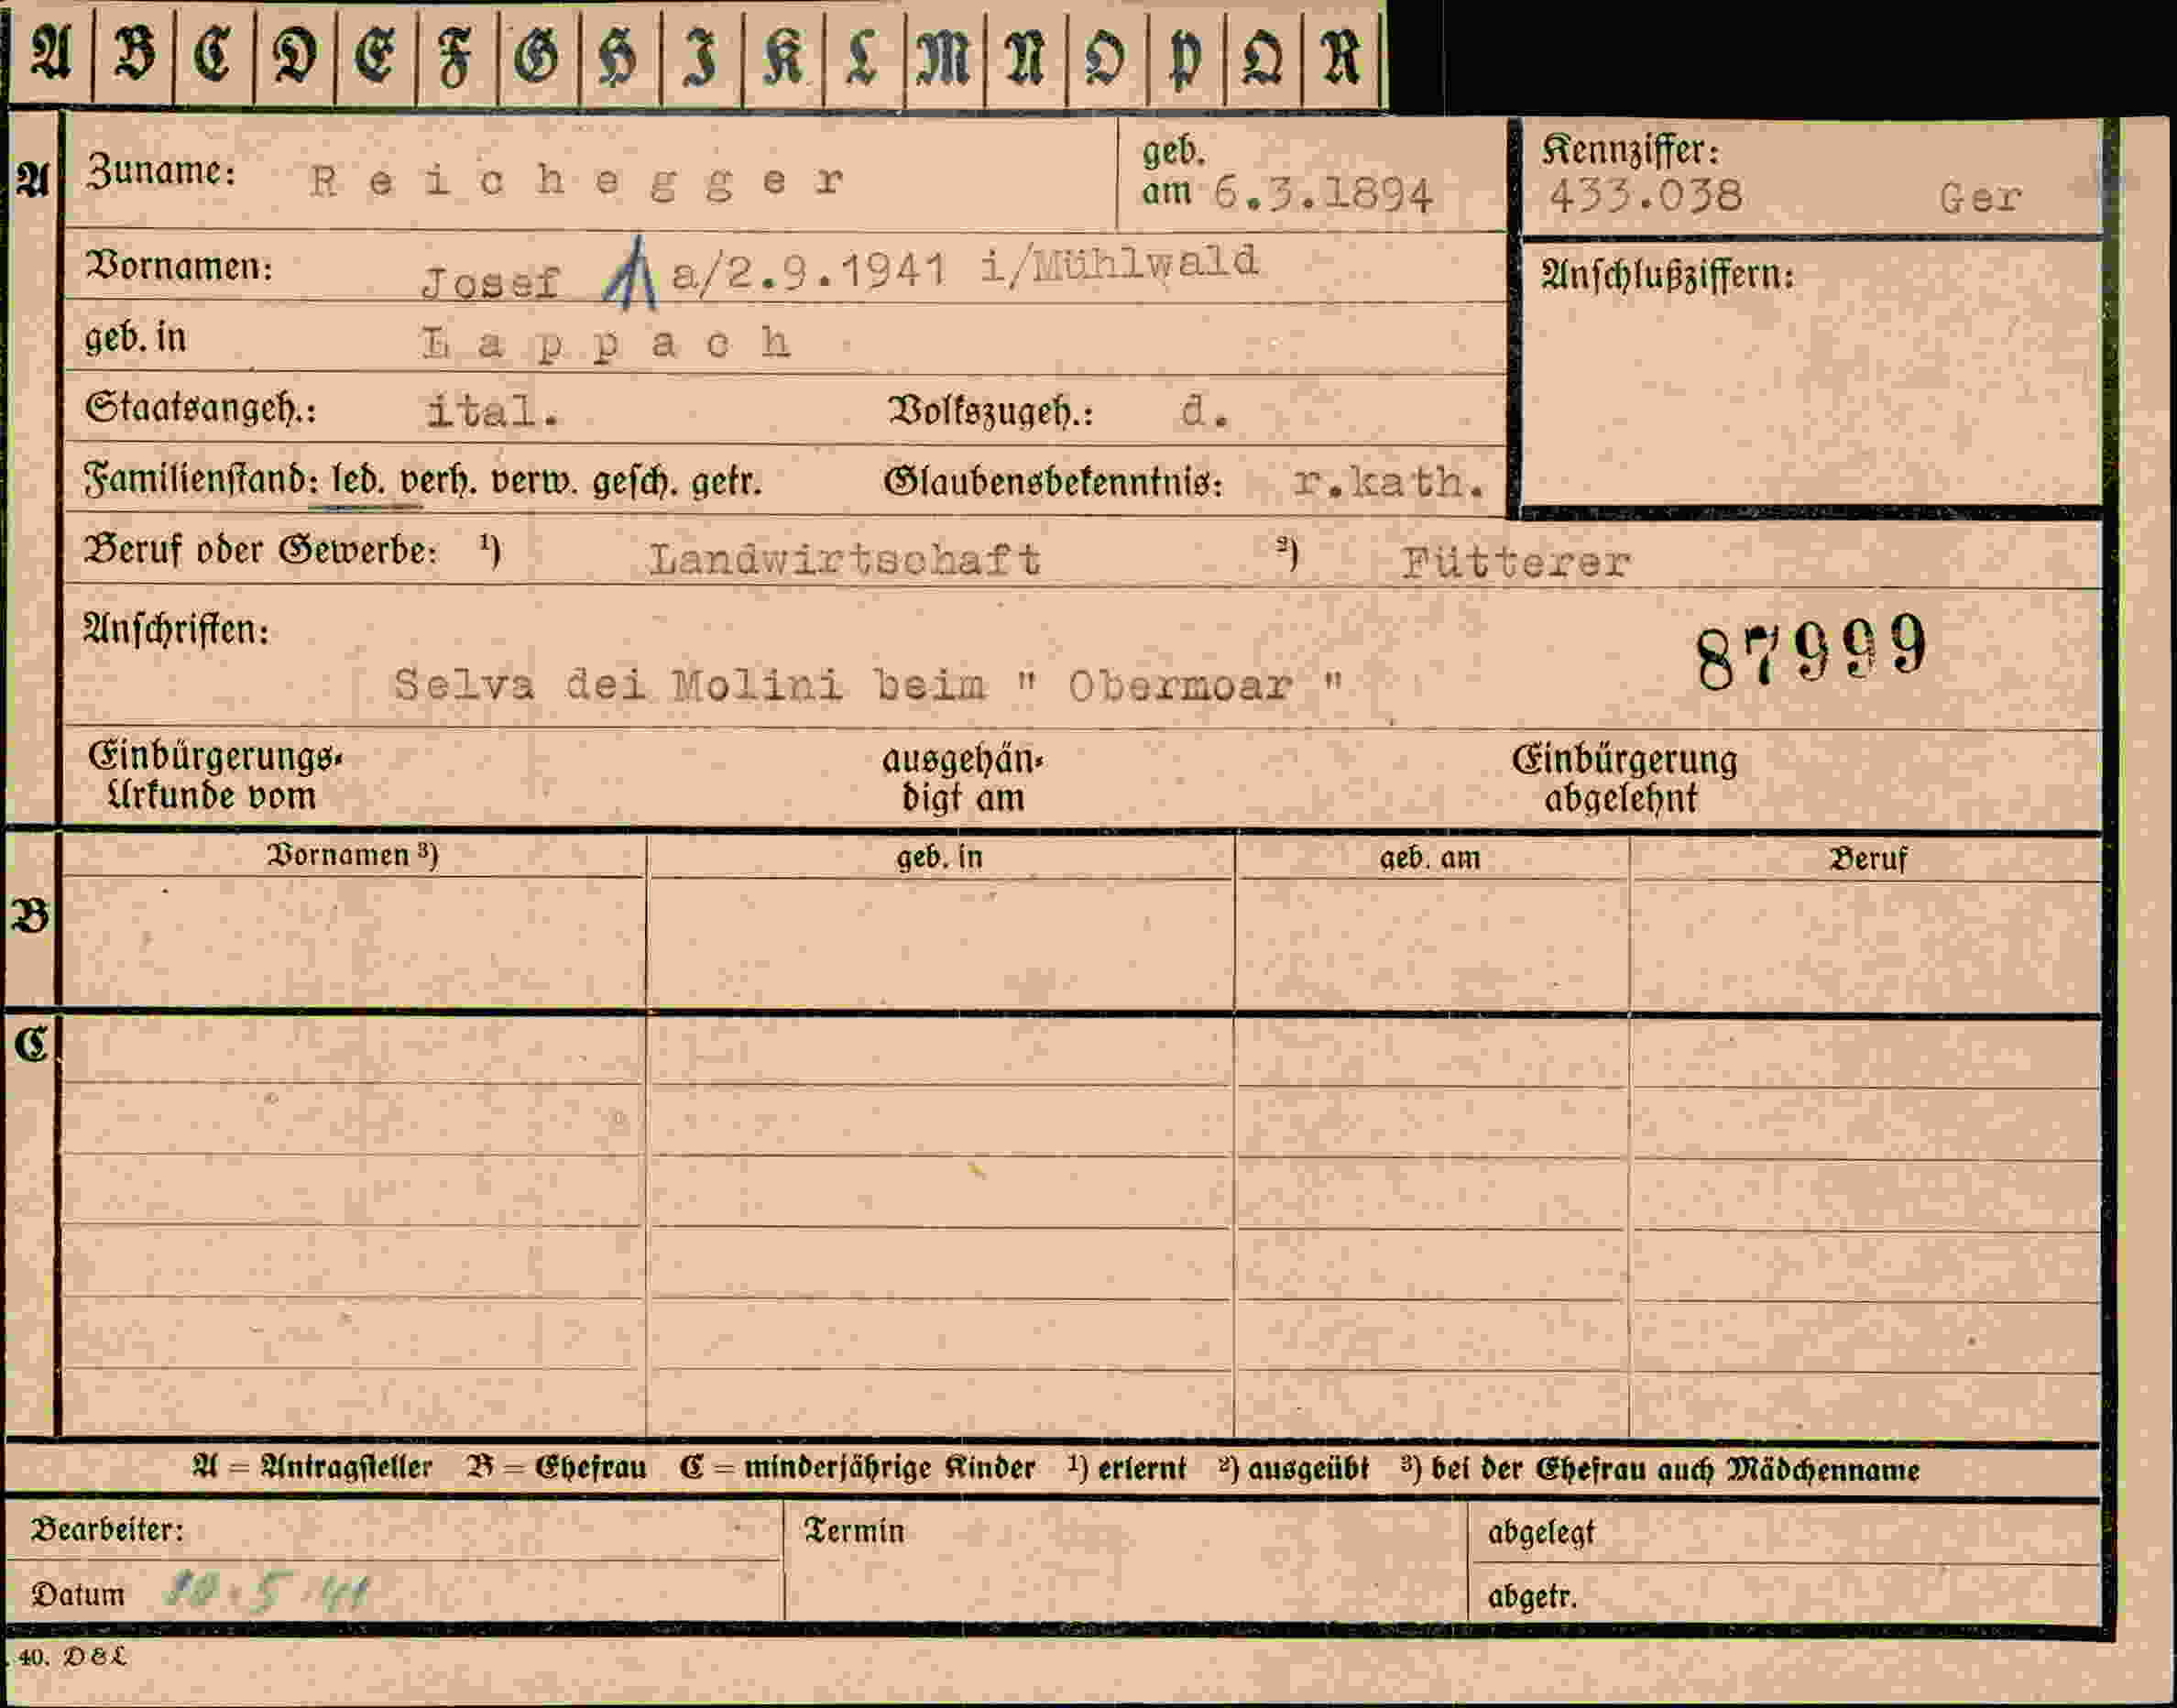 A B C D E F G H I K L M N O P Q R
A Zuname: Reichegger geb. am 6.3.1894 Kennziffer: 433.038 Ger
Vornamen: Josef a/2.9.1941 i/Mühlwald Anschlußziffern:
geb. in Lappach
Staatsangeh.: ital. Volkszugeh.: d.
Familienstand: led. verh. verw. gesch. getr. Glaubensbekenntnis: r.kath.
Beruf oder Gewerbe: ¹) Landwirtschaft ²) Fütterer
Anschriften:
87999
Selva dei Molini beim " Obermoar "
Einbürgerungs- ausgehän- Einbürgerung
Urkunde vom digt am abgelehnt
Vornamen ³) geb. in geb. am Beruf
B
C
A = Antragsteller B = Ehefrau C = minderjährige Kinder ¹) erlernt ²) ausgeübt ³) bei der Ehefrau auch Mädchenname
Bearbeiter: Termin abgelegt
Datum 10.5.41 abgetr.
40. D&L